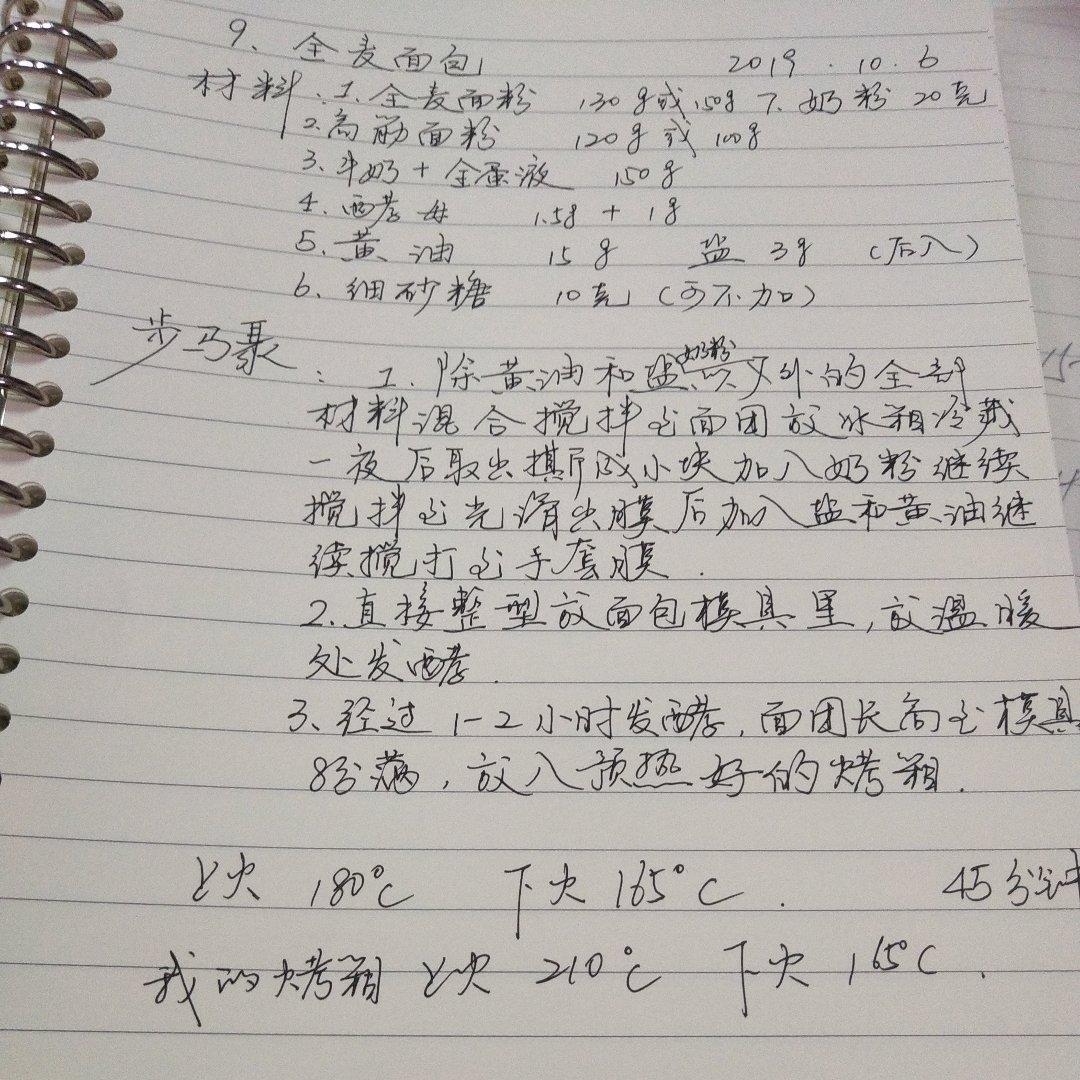 9、全麦面包 2019.10.6
材料:1.全麦面粉 130g或150g 7.奶粉 20克
2.高筋面粉 120g或100g
3.牛奶+全蛋液 150g
4.酵母 1.5g+1g
5.黄油 15g 盐 3g (后入)
6、细砂糖 10克(可不加)
步骤
:1.除黄油和盐奶粉以外的全部
材料混合搅拌至面团放冰箱冷藏
一夜后取出撕成小块加入奶粉继续
搅拌至光滑出膜后加入盐和黄油继
续搅打至手套膜.
2.直接整型放面包模具里,放温暖
处发酵.
3、经过1-2小时发酵,面团长高至模具
8分满,放入预热好的烤箱.
上火 180℃ 下火 165℃. 45分钟
我的烤箱上火 210℃ 下火 165℃.